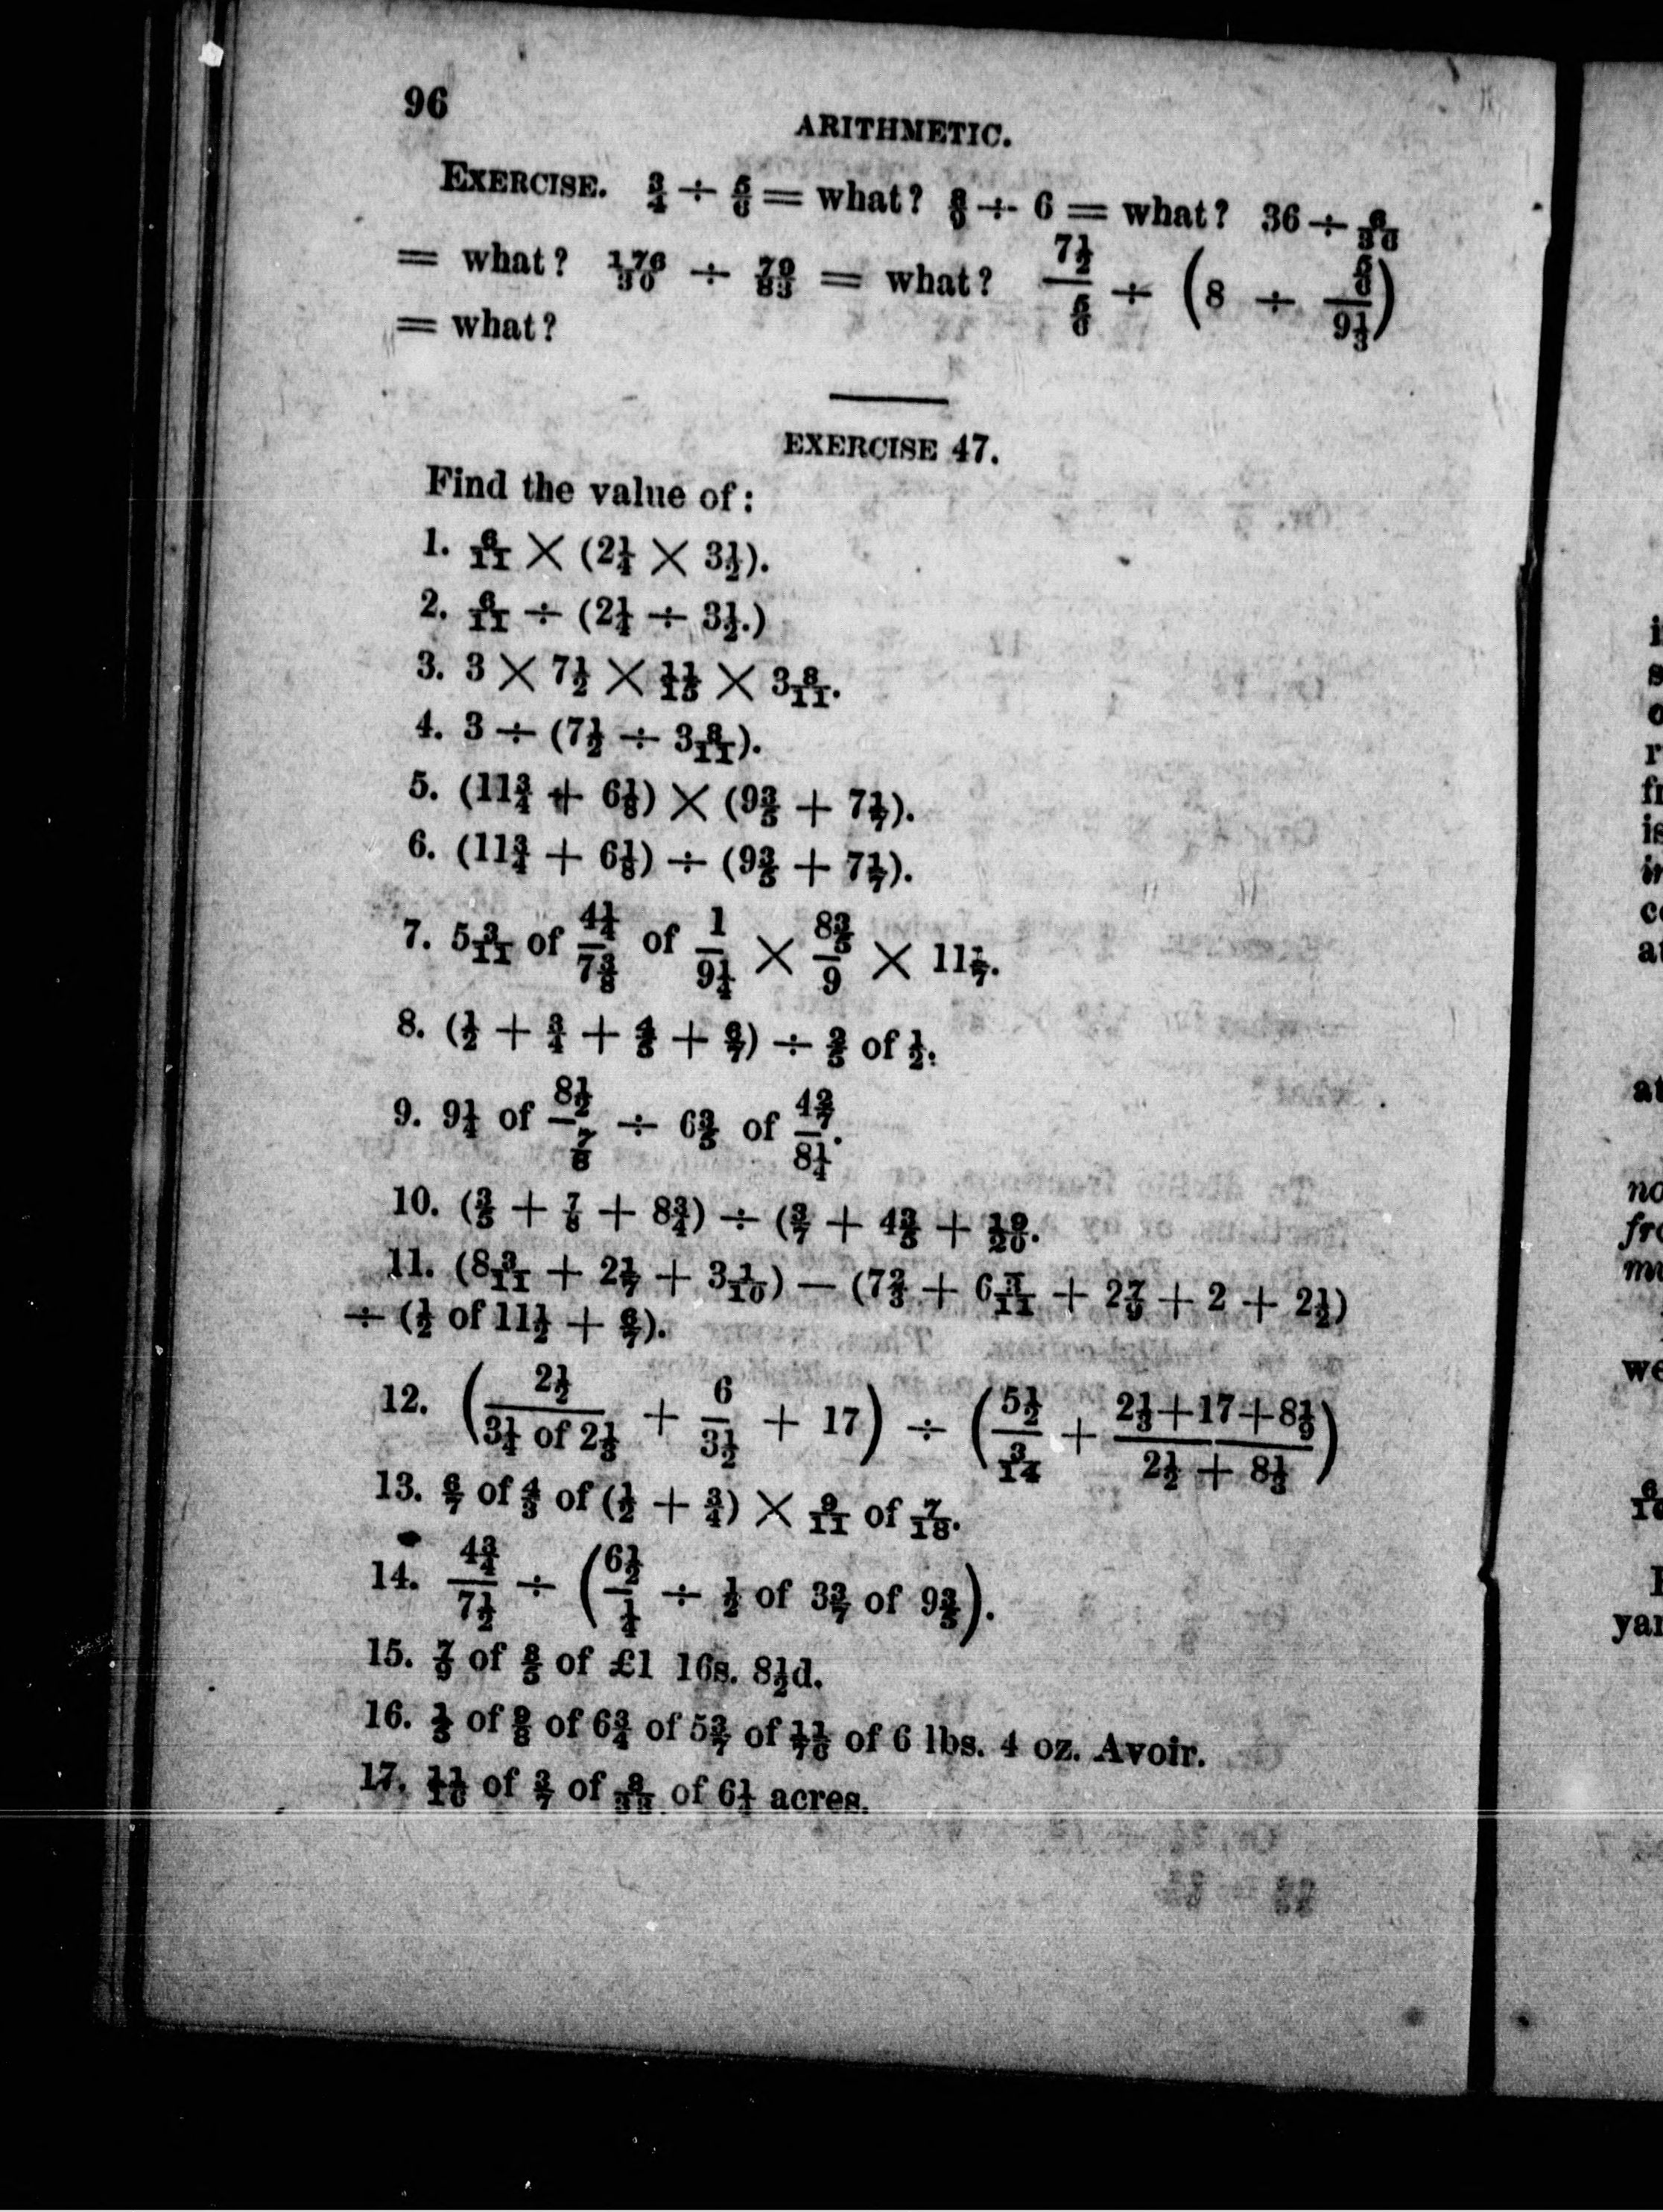 96
ARITHMETIC.
EXERCISE. 3/4 ÷ 5/6 = what? 8/9 ÷ 6 = what? 36 ÷ 6/36
= what? 176/30 ÷ 79/83 = what? 7 1/2 / 5/6 ÷ (8 ÷ 5/6 / 9 1/3)
= what?
EXERCISE 47.
Find the value of:
1. 6/11 × (2 1/4 × 3 1/2).
2. 6/11 ÷ (2 1/4 ÷ 3 1/2.)
3. 3 × 7 1/2 × 11/15 × 3 8/11.
4. 3 ÷ (7 1/2 ÷ 3 8/11).
5. (11 3/4 + 6 1/8) × (9 3/5 + 7 1/7).
6. (11 3/4 + 6 1/8) ÷ (9 3/5 + 7 1/7).
7. 5 3/11 of 4 1/4 / 7 3/8 of 1 / 9 1/4 × 8 3/5 / 9 × 11 1/7.
8. (1/2 + 3/4 + 4/5 + 6/7) ÷ 2/5 of 1/2.
9. 9 1/4 of 8 1/2 / 7/8 ÷ 6 3/5 of 4 2/7 / 8 1/4.
10. (3/5 + 7/8 + 8 3/4) ÷ (3/7 + 4 3/5 + 19/20.
11. (8 3/11 + 2 1/7 + 3 1/10) — (7 2/3 + 6 3/11 + 2 7/9 + 2 + 2 1/2)
÷ (1/2 of 11 1/2 + 6/7).
12. (2 1/2 / 3 1/4 of 2 1/3 + 6 / 3 1/2 + 17) ÷ (5 1/2 / 3/14 + 2 1/3+17+8 1/9 / 2 1/2 + 8 1/3)
13. 6/7 of 4/3 of (1/2 + 3/4) × 9/11 of 7/18.
14. 4 3/4 / 7 1/2 ÷ (6 1/2 / 1/4 ÷ 1/2 of 3 3/7 of 9 3/5).
15. 7/9 of 8/5 of £1 16s. 8 1/2d.
16. 1/3 of 9/8 of 6 3/4 of 5 3/7 of 11/76 of 6 lbs. 4 oz. Avoir.
17. 11/16 of 3/7 of 8/33 of 6 1/4 acres.